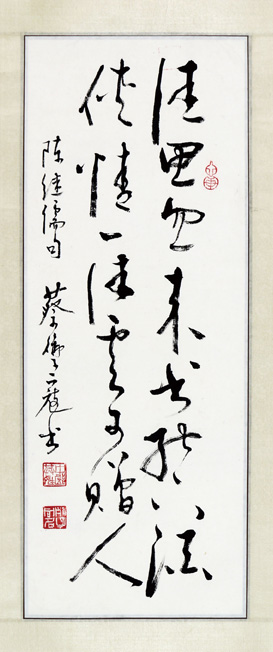 佳思忽来书能下酒
侠情一往云可赠人
陈继儒句 蔡 书